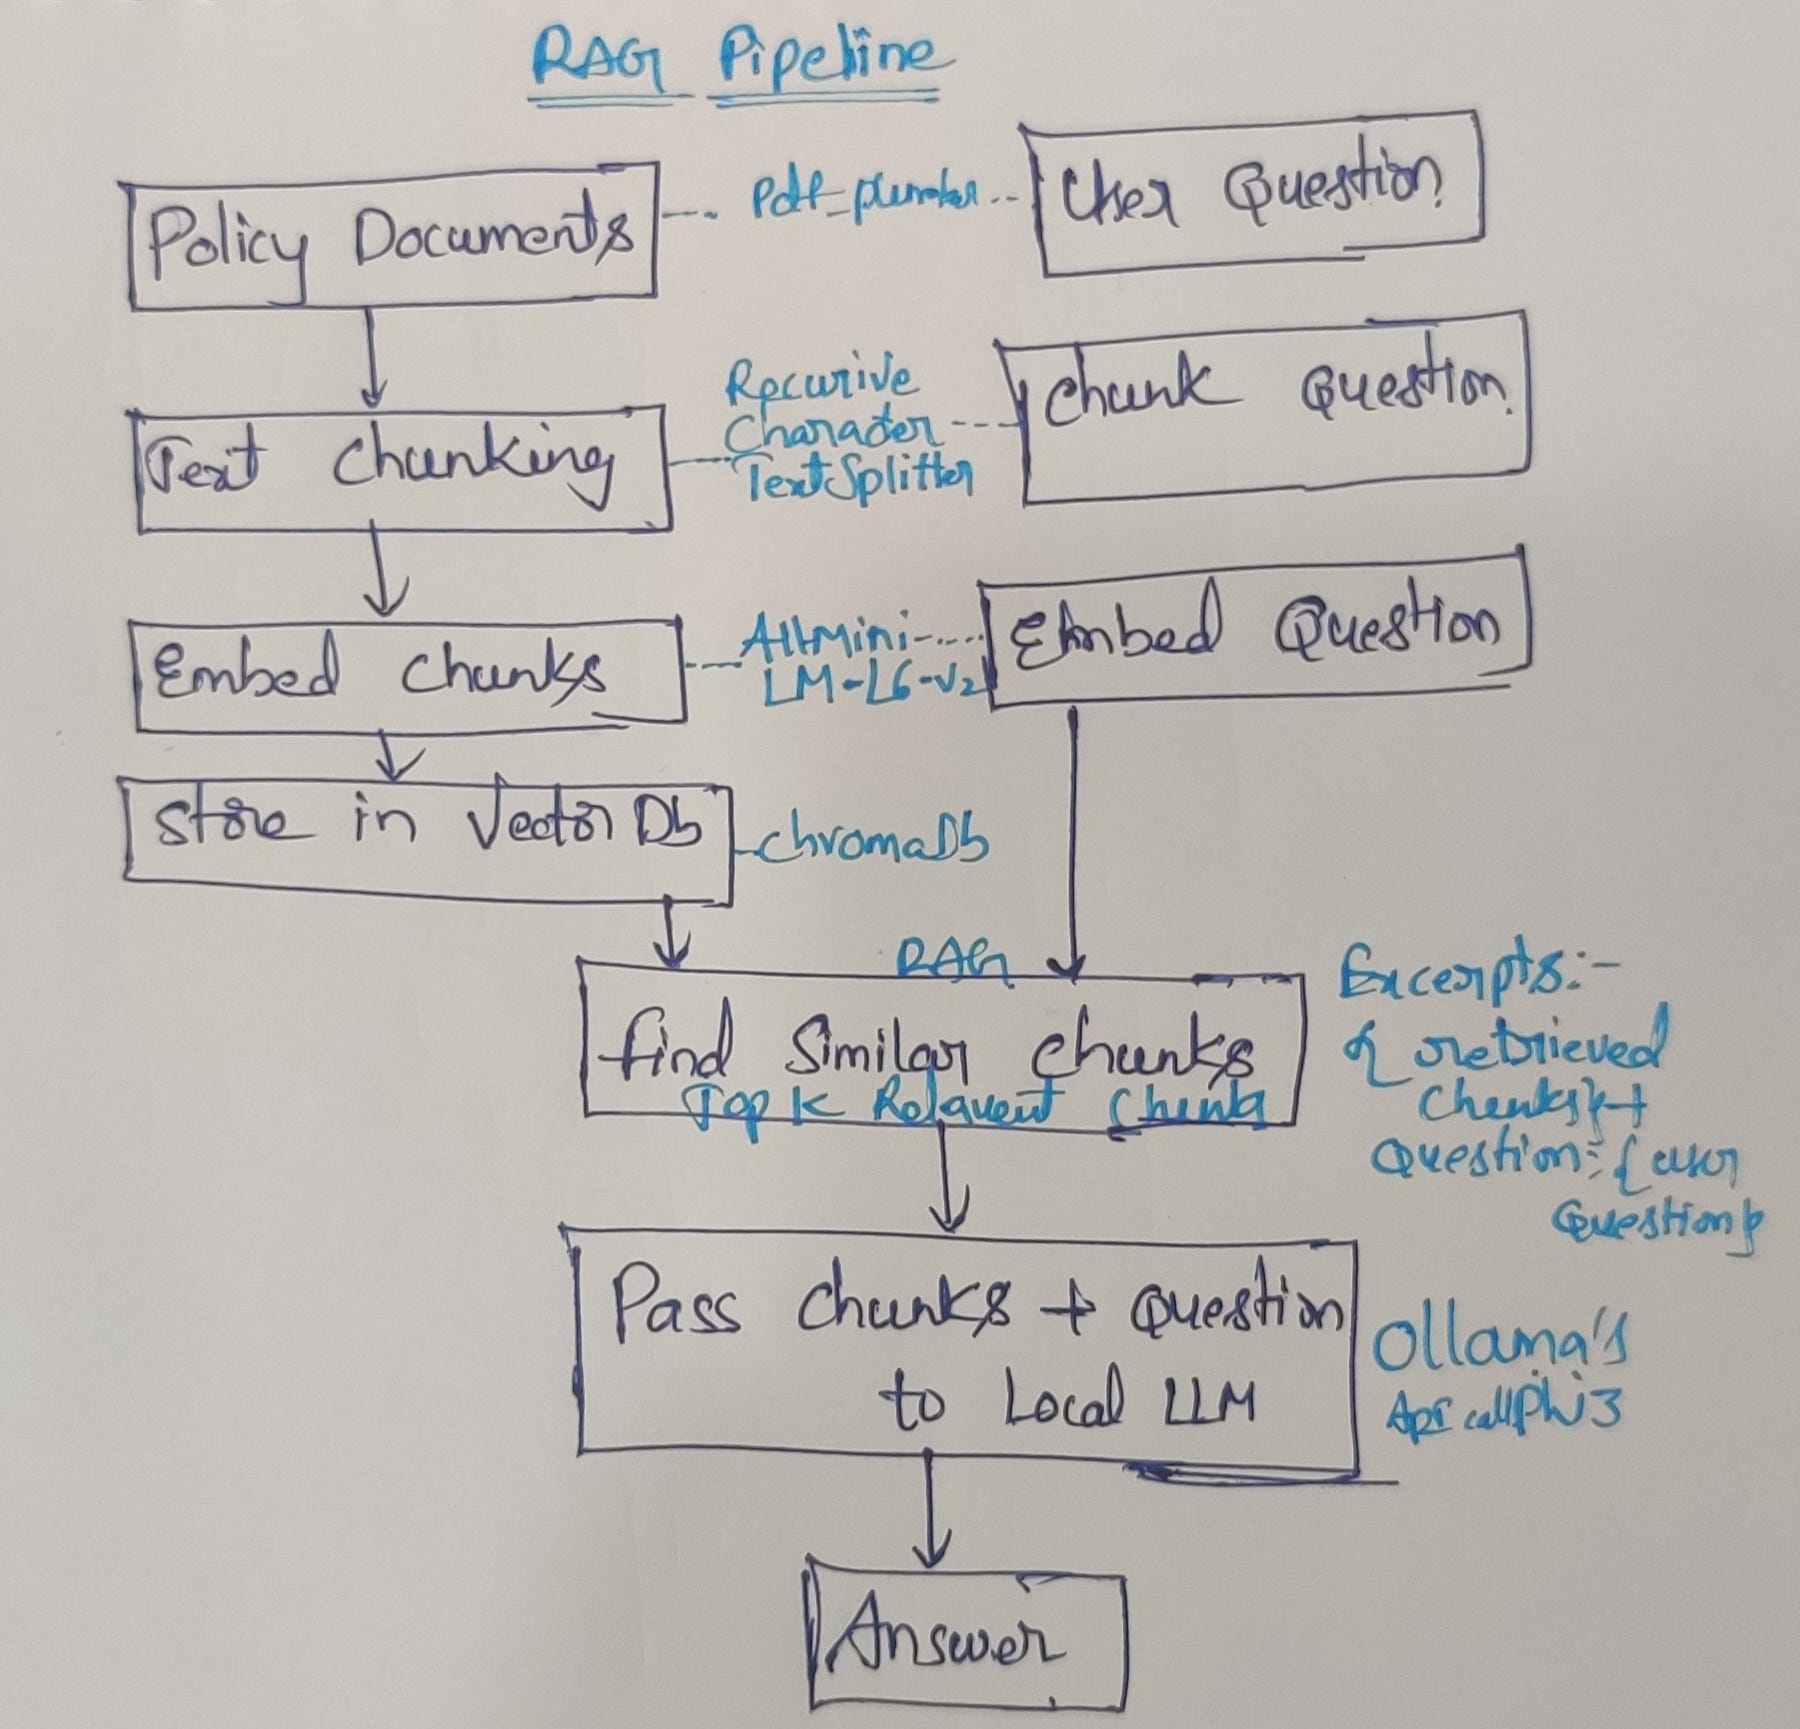 RAG Pipeline
Policy Documents
Pdf_plumber
User Question
Text Chunking
Recurive
Character
TextSplitter
Chunk Question
Embed Chunks
All-Mini
LM-L6-v2
Embed Question
Store in Vector Db
ChromaDb
RAG
find Similar Chunks
Top K Relavent Chunks
Excerpts:-
{ retrieved
Chunks}+
Question: { user
Question}
Pass Chunks + Question
to Local LLM
Ollama's
Api call Phi3
Answer